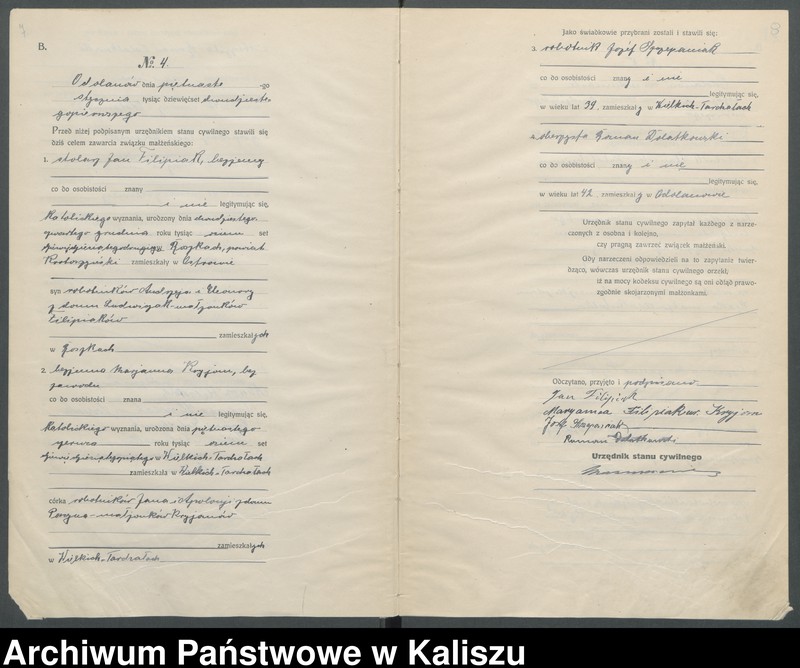 7
B.
№ 4
Odolanów dnia piętnasto -go
stycznia tysiąc dziewięćset dwudziesto
pierwszego
Przed niżej podpisanym urzędnikiem stanu cywilnego stawili się
dziś celem zawarcia związku małżeńskiego:
1. stolarz Jan Filipiak, bezżenny
co do osobistości znany
i nie legitymując się,
Katolickiego wyznania, urodzony dnia dwudziestego
czwartego grudnia roku tysiąc osiem set
Roszkach, powiat
zamieszkały w Ostrowie
syn robotników Andrzeja i Eleonory
z domu Ludwiczak - małżonków
Filipiaków
zamieszkałych
w Roszkach
2. Marjanna Kryjom, bez
zawodu
co do osobistości znana
i nie legitymując się,
Katolickiego wyznania, urodzona dnia piętnastego
czerwca roku tysiąc osiem set
w Wielkich-Tarchałach
zamieszkała w Wielkich-Tarchałach
córka robotników Jana i Apolonji z domu
małżonków Kryjomów
zamieszkałych
w Wielkich-Tarchałach
8
Jako świadkowie przybrani zostali i stawili się:
3. robotnik Józef Szczepaniak
co do osobistości znany i nie
legitymując się,
w wieku lat 39, zamieszkały w Wielkich-Tarchałach
4. oberżysta Roman Dolatkowski
co do osobistości znany i nie
legitymując się,
w wieku lat 42 zamieszkały w Odolanowie
Urzędnik stanu cywilnego zapytał każdego z narze-
czonych z osobna i kolejno,
czy pragną zawrzeć związek małżeński.
Oby narzeczeni odpowiedzieli na to zapytanie twier-
dząco, wówczas urzędnik stanu cywilnego orzekł,
iż na mocy kodeksu cywilnego są oni odtąd prawo-
zgodnie skojarzonymi małżonkami.
Odczytano, przyjęto i podpisano
Jan Filipiak
Maryanna Filipiakow. Kryjom
Józef Szczepaniak
Roman Dolatkowski
Urzędnik stanu cywilnego
Archiwum Państwowe w Kaliszu